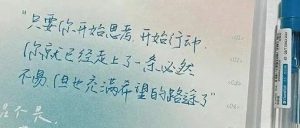 “只要你开始思考，开始行动，
你就已经走上了一条必然
不易，但也充满希望的路途了”